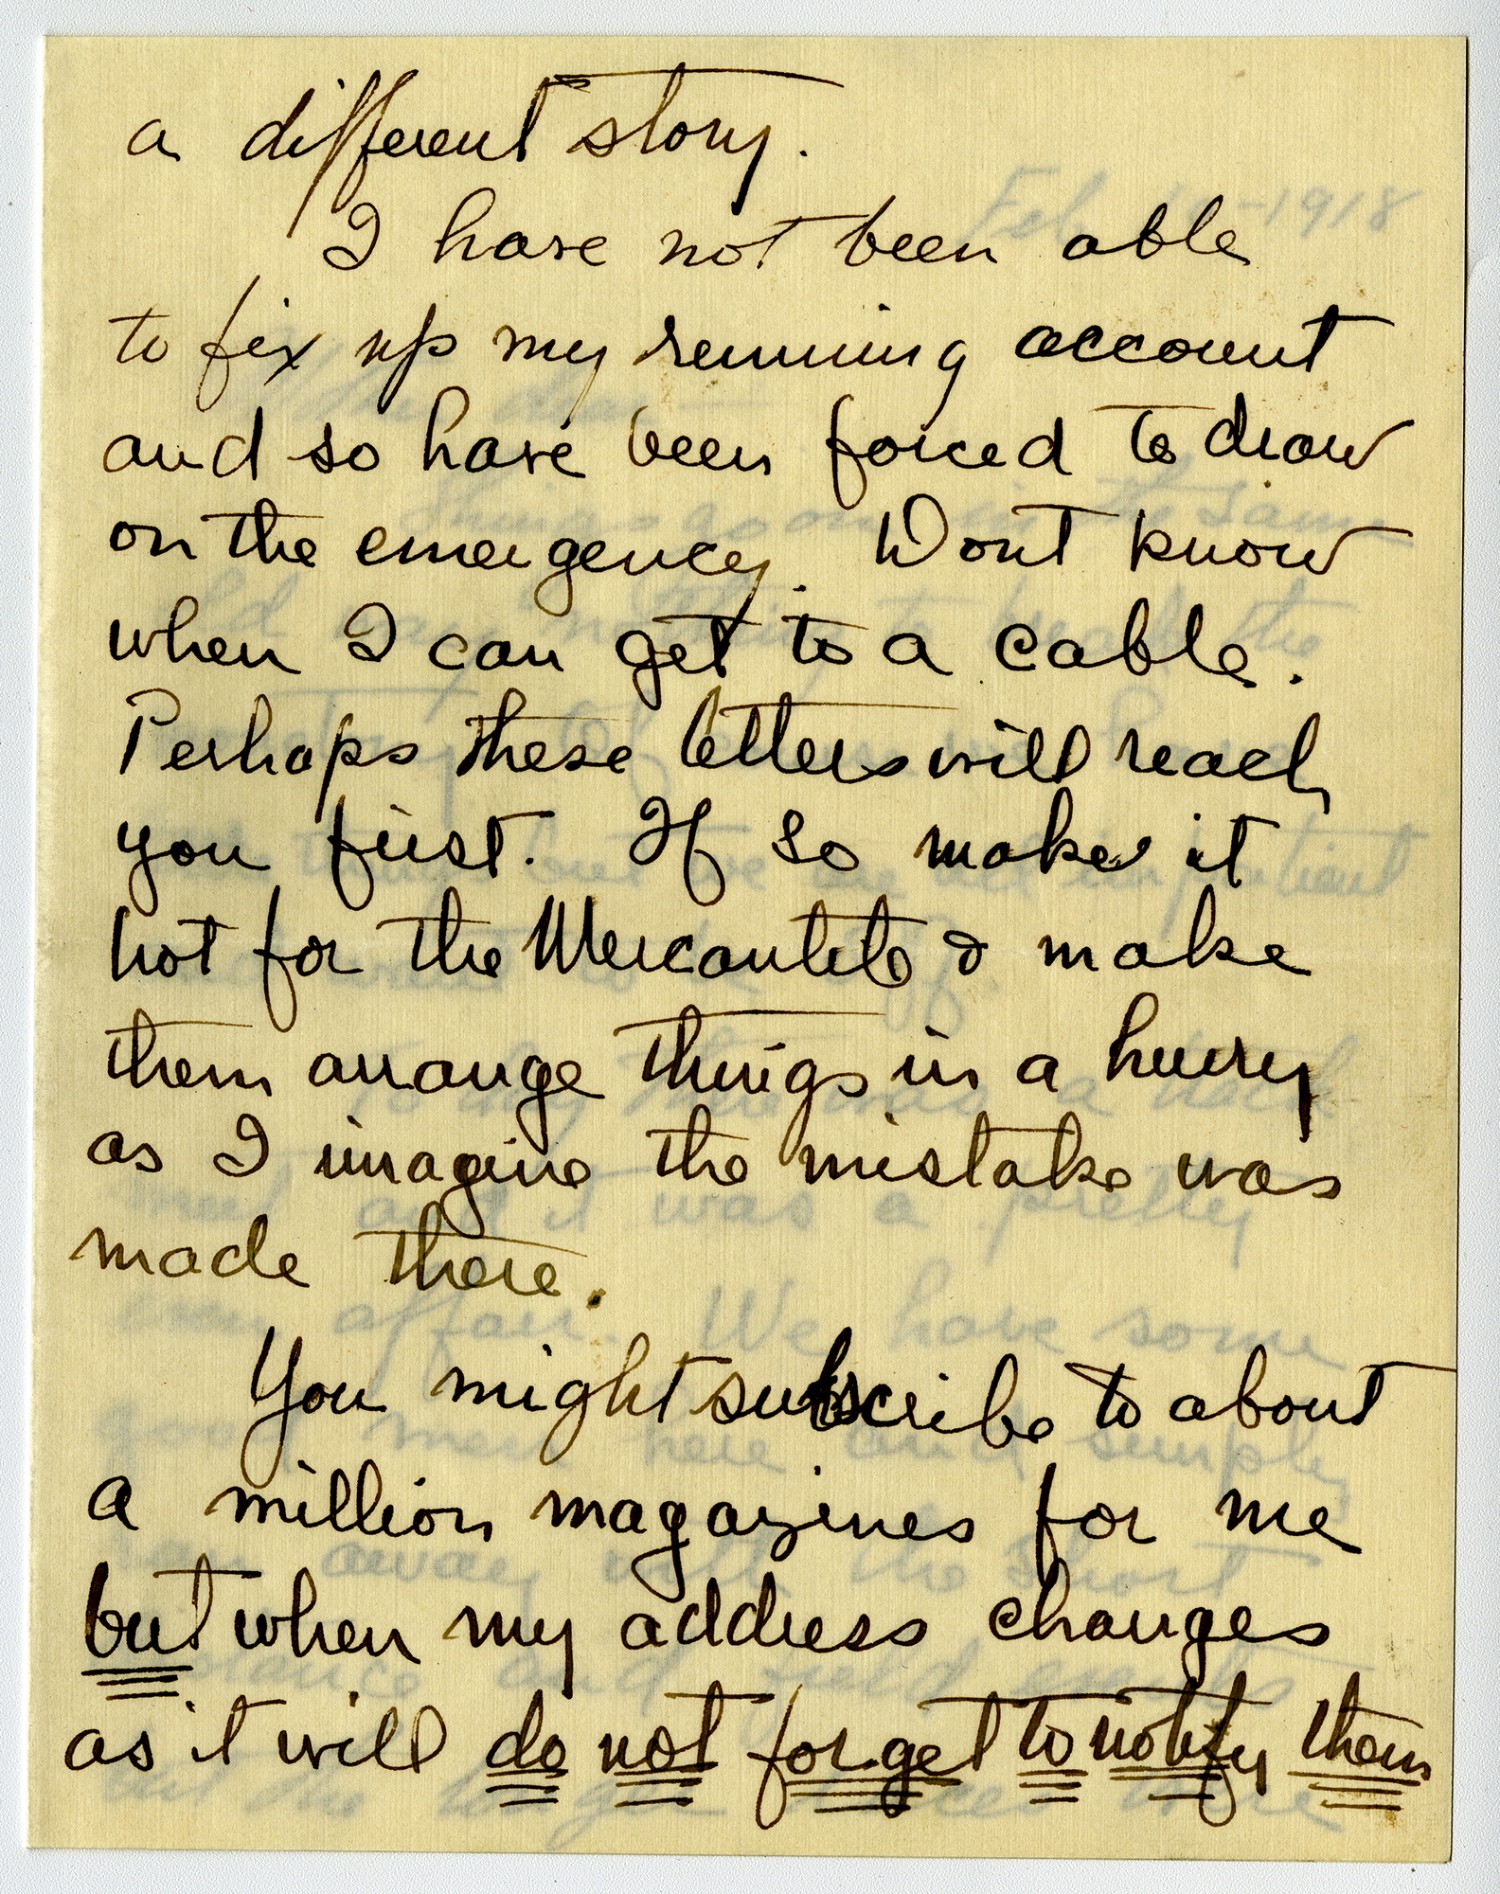 a different story.
I have not been able
to fix up my running account
and so have been forced to draw
on the emergency. Dont know
when I can get to a cable.
Perhaps these letters will reach
you first. If so make it
hot for the Mercantile & make
them arrange things in a hurry
as I imagine the mistake was
made there.
You might subscribe to about
a million magazines for me
but when my address changes
as it will do not forget to notify them